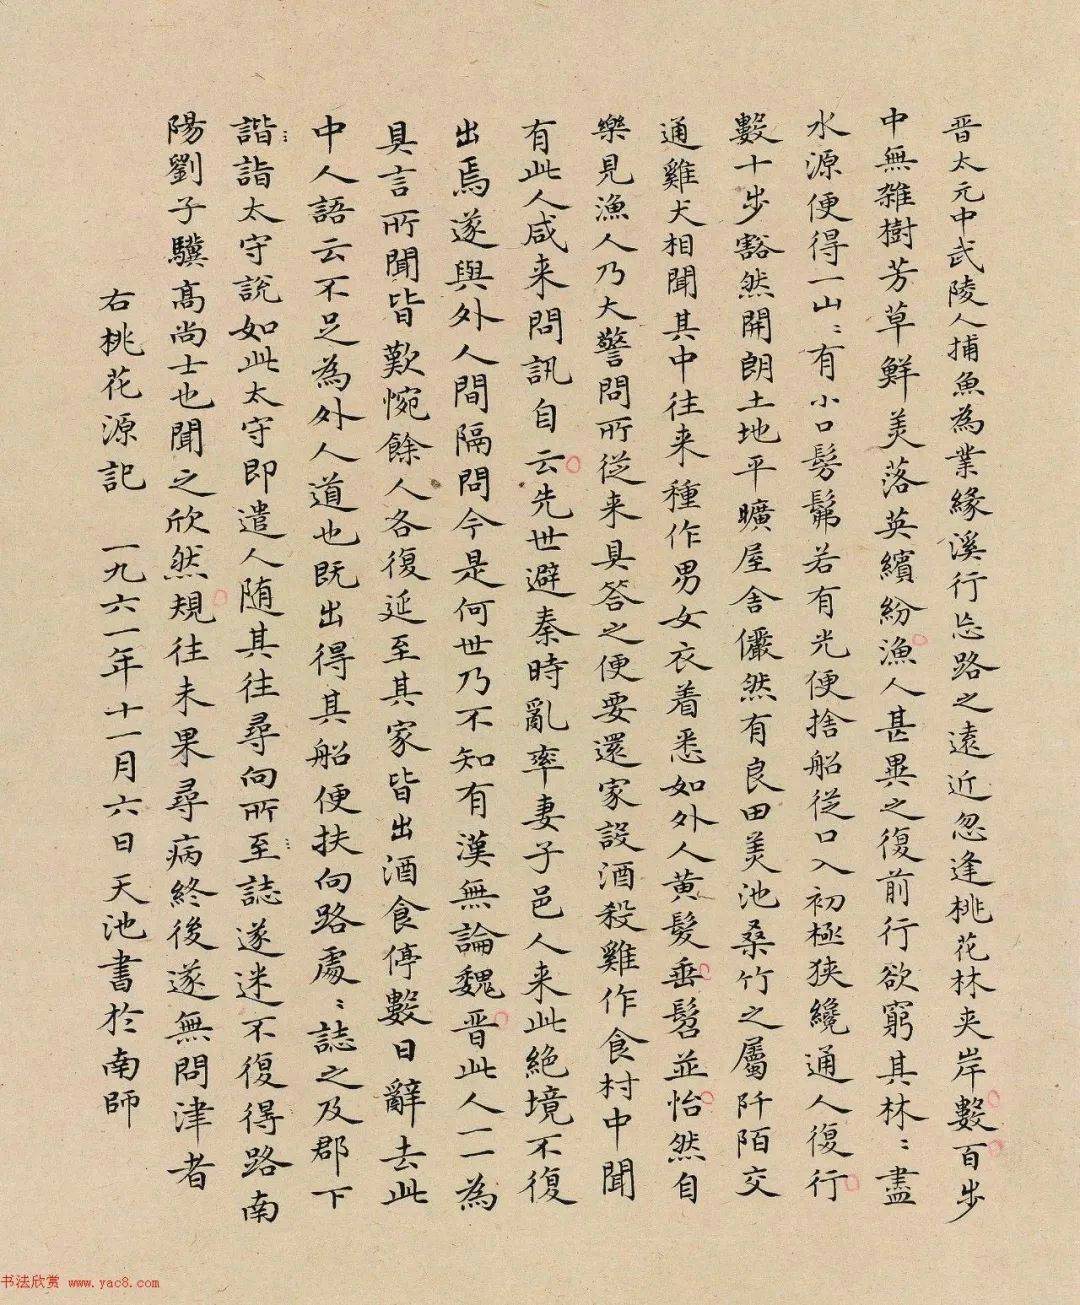 晋太元中武陵人捕魚為業緣溪行忘路之遠近忽逢桃花林夾岸數百步
中無雜樹芳草鮮美落英繽紛漁人甚異之復前行欲窮其林〻盡
水源便得一山〻有小口髣髴若有光便捨船從口入初極狹纔通人復行
數十步豁然開朗土地平曠屋舍儼然有良田美池桑竹之屬阡陌交
通雞犬相聞其中往来種作男女衣着悉如外人黃髮垂髫並怡然自
樂見漁人乃大警問所從来具答之便要還家設酒殺雞作食村中聞
有此人咸来問訊自云先世避秦時亂率妻子邑人来此絕境不復
出焉遂與外人間隔問今是何世乃不知有漢無論魏晋此人一一為
具言所聞皆歎惋餘人各復延至其家皆出酒食停數日辭去此
中人語云不足為外人道也既出得其船便扶向路處〻誌之及郡下
諧詣太守說如此太守即遣人随其往尋向所至誌遂迷不復得路南
陽劉子驥高尚士也聞之欣然規往未果尋病終後遂無問津者
右桃花源記 一九六一年十一月六日天池書於南師
书法欣赏 www.yac8.com